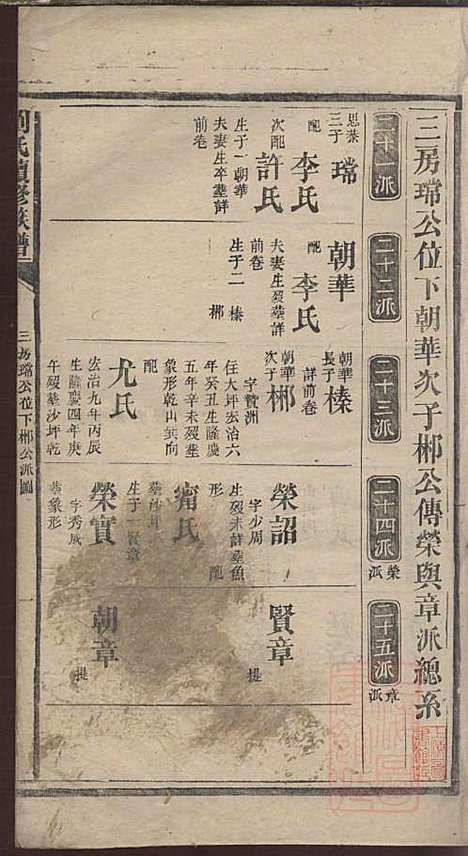 三房璫公位下朝華次子郴公傳榮與章派總系
二十一派
二十二派
二十三派
二十四派
榮派
二十五派
章派
思荼
三子
璫
配
李氏
次配
許氏
生子一朝華
夫妻生卒葬詳
前卷
朝華
配
李氏
夫妻生歿葬詳
前卷
生子二 榛
郴
朝華
長子
榛
詳前卷
朝華
次子
郴
字贊洲
住大坪宏治六
年癸丑生隆慶
五年辛未歿葬
象形乾山㢲向
配
尤氏
宏治九年丙辰
生隆慶四年庚
午歿葬沙坪乾
榮詔
字少周
生歿未詳葬魚
形 配
甯氏
葬沙坪
生子一賢章
榮實
字秀成
葬象形
賢章
提
朝章
提
三房璫公位下郴公派圖
一
氏續修族譜